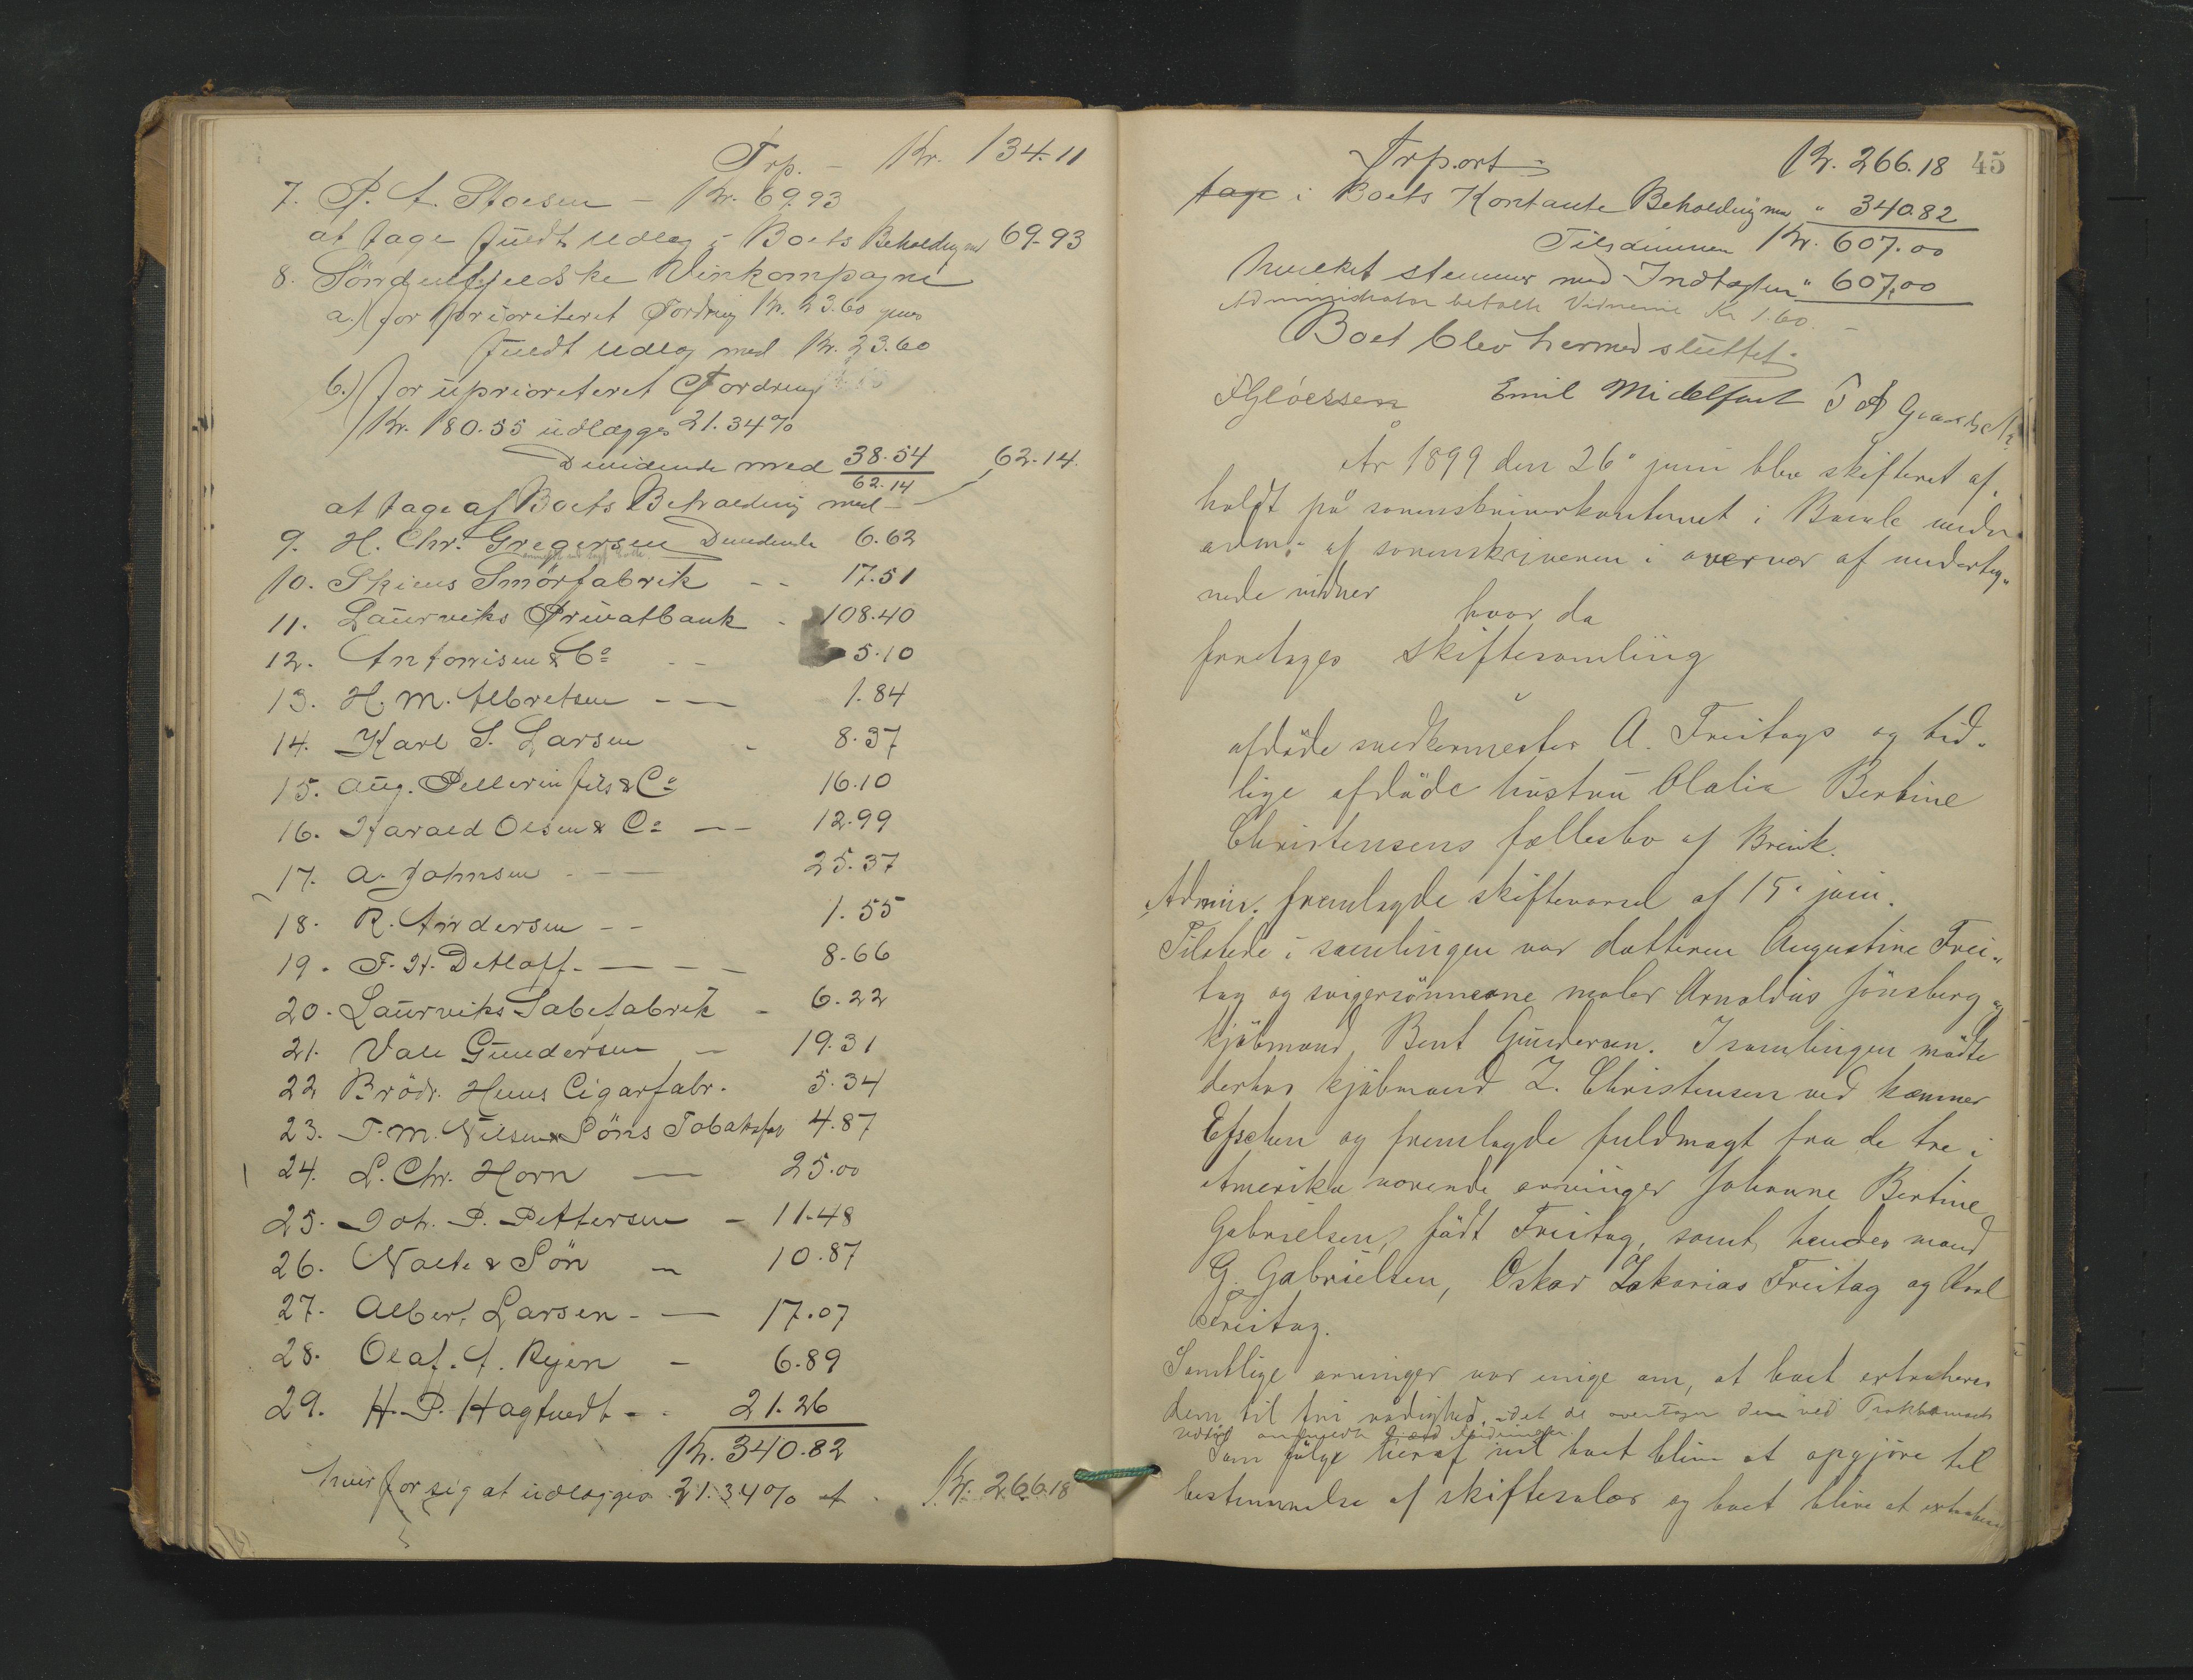 Trp. - Kr. 134.11
7. P. A. Stoesen - Kr. 69.93
at tage fuldt Udlæg i Boets Beholdning med 69.93
8. Søndenfjeldske Vinkompagni
a.) for prioriteret Fordring Kr. 23.60 gives
fuldt Udlæg med Kr. 23.60
b.) for uprioriteret Fordring
Kr. 180.55 udlægges 21.34%
Dividende med 38.54 62.14.
62.14
at tage af Boets Beholdning med -
9. H. Chr. Gregersen Dividende 6.62
10. Skiens Smørfabrik - - 17.51
11. Laurviks Privatbank - 108.40
12. Antonisen & Co - - 5.10
13. H. M. Albretsen - - 1.84
14. Karl S. Larsen - 8.37
15. Aug. Pellerin fils & Co 16.10
16. Harald Olsen & Co - - 12.99
17. A. Johnsen - - 25.37
18. R. Andersen - - 1.55
19. F. H. Detloff - - - - 8.66
20. Laurviks Sæbefabrik - 6.22
21. Vall Gundersen - 19.31
22 Brödr. Huus Cigarfabr. 5.34
23. T. M. Nilsen & Söns Tobaksfab 4.87
24. L. Chr. Horn - 25.00
25. Joh. P. Pettersen - 11.48
26. Nolte & Sön - 10.87
27. Albert Larsen - - 17.07
28. Olaf. A. Ryen - 6.89
29. H. P. Hagtvedt - - 21.26
Kr. 340.82
hver for sig at udlægges 21.34% at Kr. 266.18
Trport - Kr. 266.18 45
tage i Boets Kontante Beholdning med " 340.82
Tilsammen Kr. 607.00
hvilket stemmer med Indtægten " 607,00
Administrator betalte Vidnerne Kr 1.60. -
Boet blev hermed sluttet.
Emil Midelfart
År 1899 den 26' juni blev skifteret af-
holdt på sorenskriverkontoret i Bamle under
adm: af sorenskriveren i overvær af underteg-
nede vidner
hvor da
foretoges skiftesamling
i
afdöde snedkermester A. Freitags og tid-
lige afdöde hustru Olalia Bertine
Christensens fællesbo af Brevik.
Admin. fremlagde skiftevarsel af 15' juni.
Tilstede i samlingen var datteren Augustine Frei-
tag og svigersönnerne maler Arnoldus Jönsberg og
kjöbmand Bent Gundersen. I samlingen mödte
derhos kjöbmand Z. Christensen ved kæmner
Efseten og fremlagde fuldmagt fra de tre i
Amerika værende arvinger Johanne Bertine
Gabrielsen, födt Freitag, samt hendes mand
G. Gabrielsen, Oskar Zakarias Freitag og Karl
Freitag.
Samtlige arvinger var enige om, at boet extraheres
dem til fri rådighed, idet de overtager den ved
Som fölge heraf vil boet blive at opgjöre til
bestemmelse af skiftesalær og boet blive at extraheres